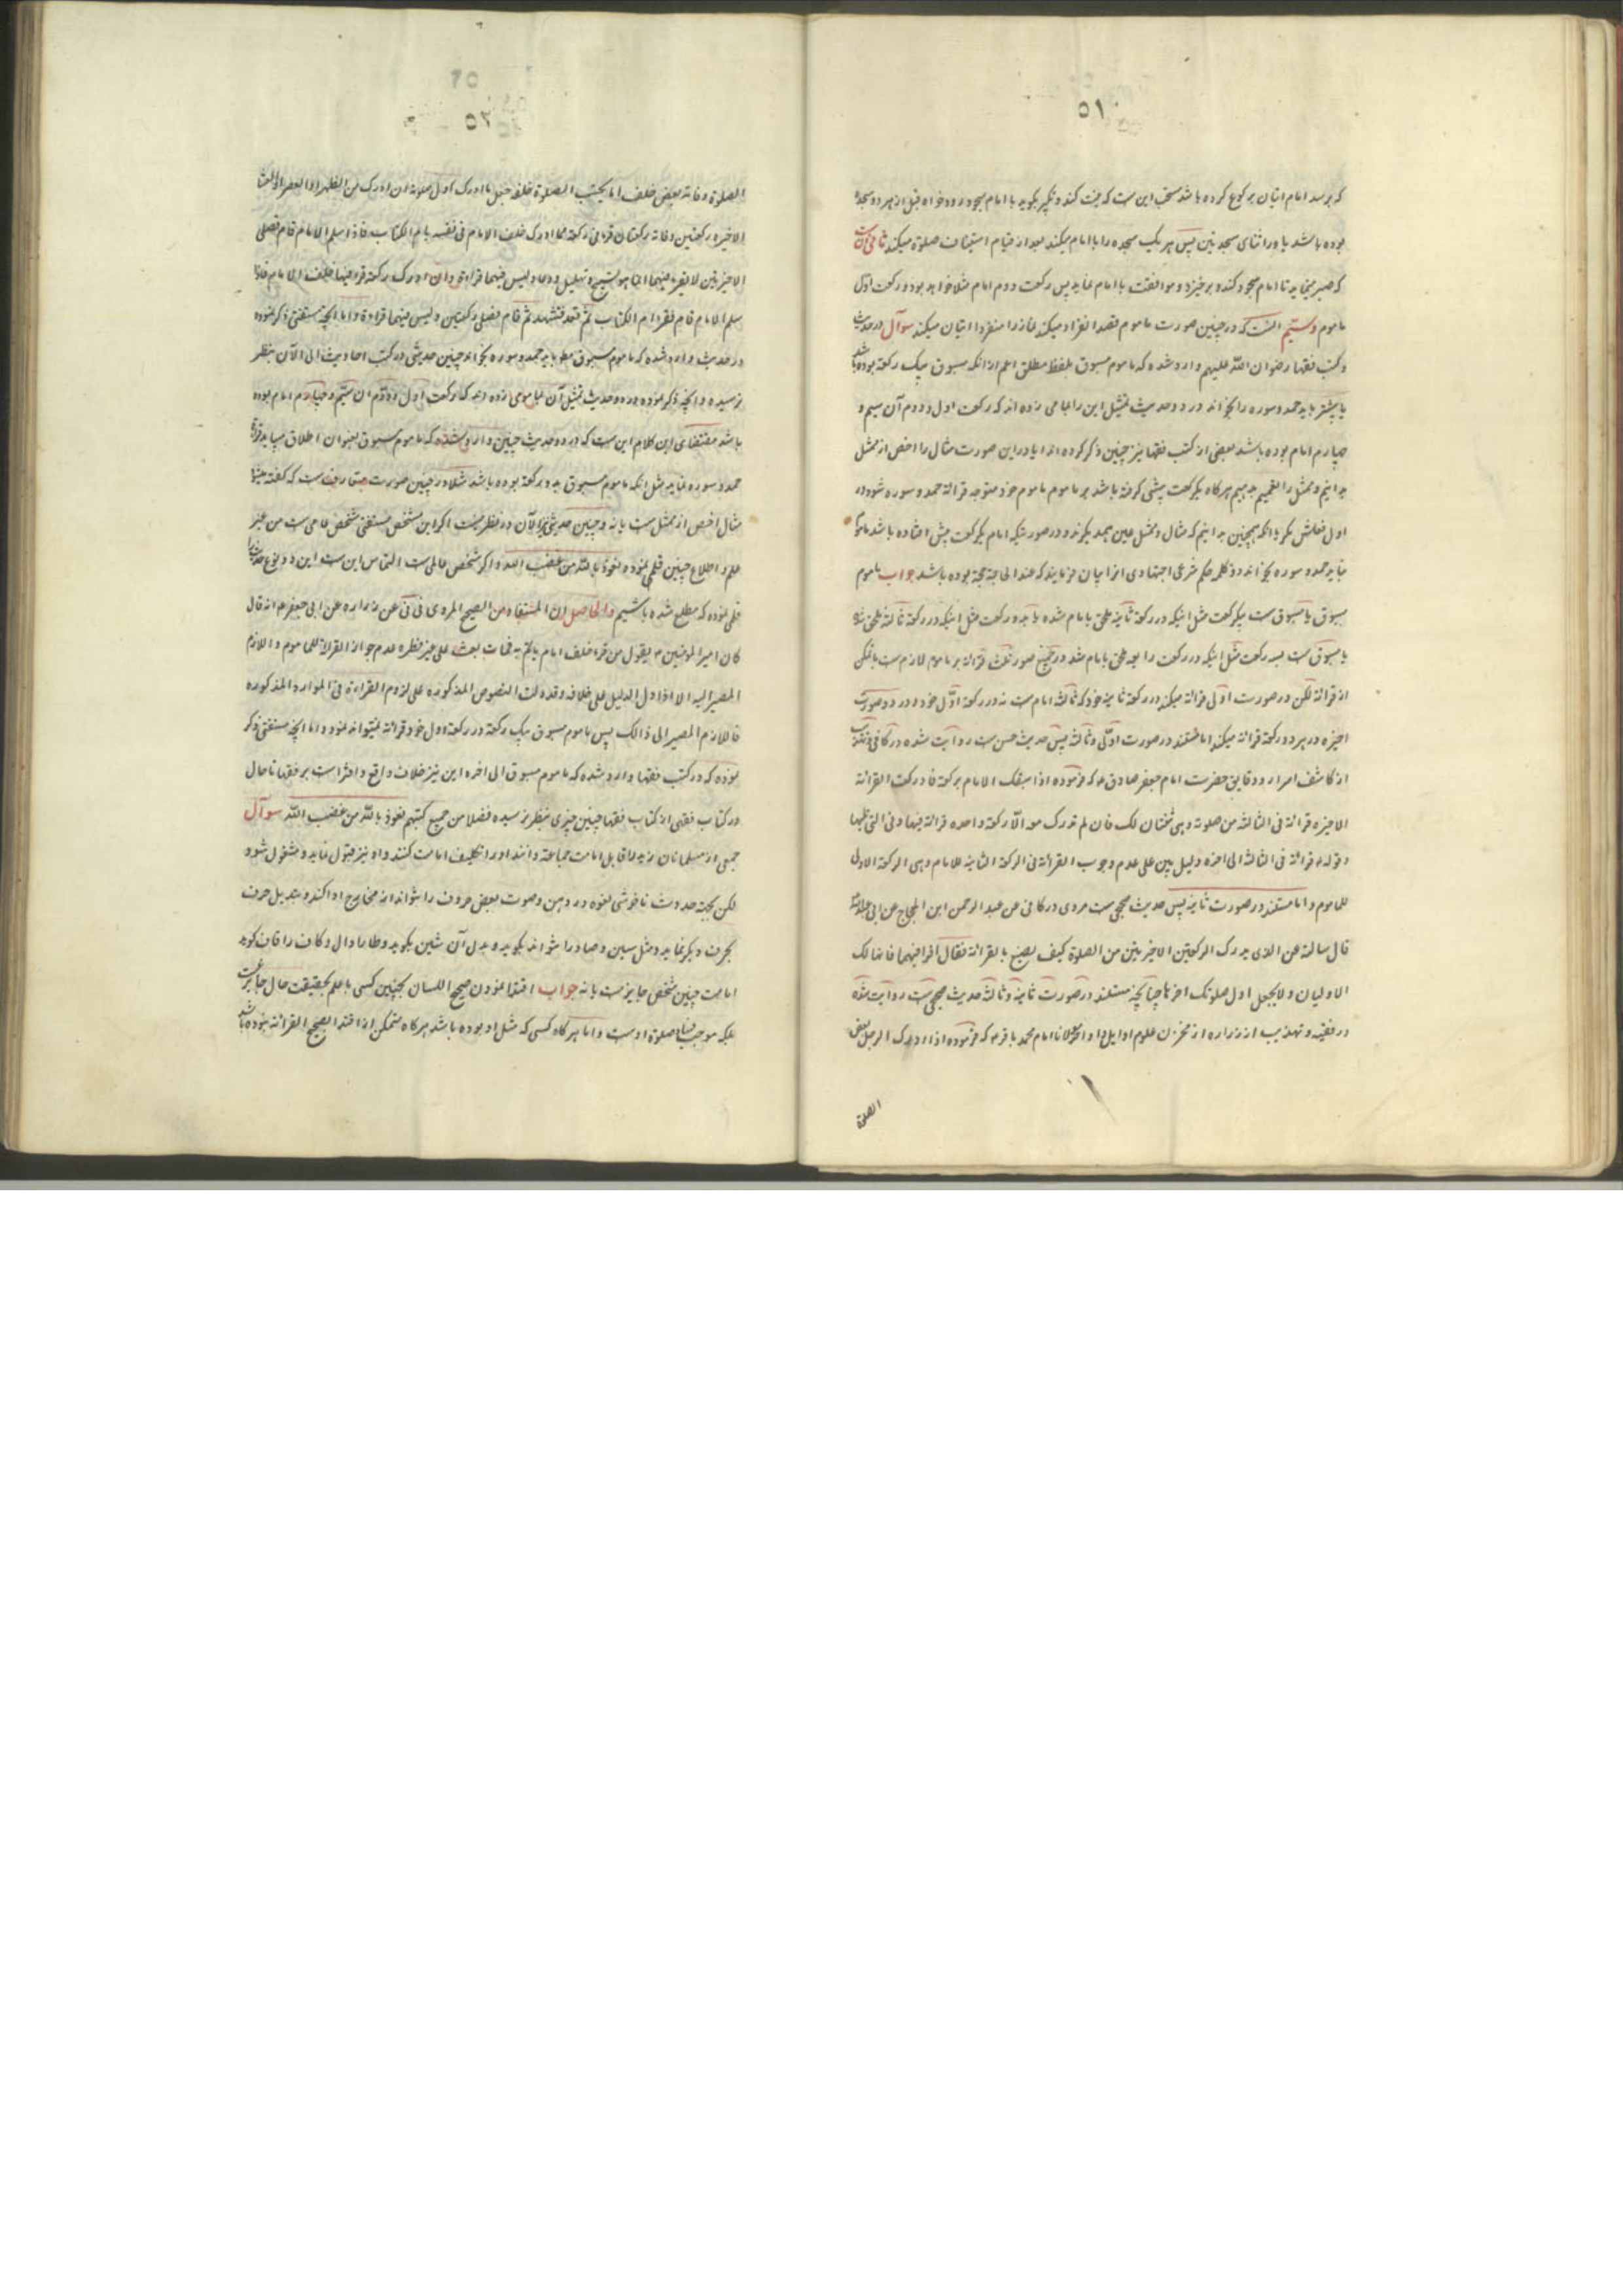 ٥١
که برسد امام اتیان برکوع کرده باشد مستحب این است که نیت کند و تکبیر بکوید با امام بسجود رود خواه قبل از هر دو سجده
بوده باشد یا در اثنای سجدتین پس هر یک سجده را با امام میکند بعد از قیام استیناف صلوة میکند ثانی آن است
که صبر مینماید تا امام سجود کند و برخیزد و موافقت با امام نماید پس رکعت دوم امام مثلا خواهد بود و رکعت اول
ماموم و سیّم انست که در چنین صورت ماموم قصد انفراد میکند نماز را منفردا اتیان میکند سوآل در حدیث
و کتب فقها رضوان الله علیهم وارد شده که ماموم مسبوق بلفظ مطلق اعم از انکه مسبوق بیک رکعة بوده باشد
یا بیشتر باید حمد و سوره را بخواند و در دو حدیث تمثیل این را بجامی زده اند که رکعت اول و دوم آن سیم و
چهارم امام بوده باشد بعضی از کتب فقها نیز چنین ذکر کرده اند ایا در این صورت مثال را اخص از ممثل
بدانیم و ممثل را تعمیم بدهیم هرکاه یکرکعت پیشی کرفته باشد بر ماموم ماموم خود متوجه قرائة حمد و سوره شود در
اول فعلش یکر یا انکه همچنین بدانیم که مثال و ممثل عین همدیکرند و در صورتیکه امام یکرکعت پیش افتاده باشد ماموم
نباید حمد و سوره بخواند حکم شرعی اجتهادی انرا بیان فرمایند که عند الحاجة حجة بوده باشد جواب ماموم
مسبوق یا مسبوق است بیکرکعت مثل اینکه در رکعة ثانیة ملحق بامام شده یا بدو رکعت مثل اینکه در رکعة ثالثة ملحق شده
یا مسبوق است بسه رکعت مثل اینکه در رکعت رابعه ملحق بامام شد در جمیع صور ثلث قرائة بر ماموم لازم است با تمکن
از قرائة لکن در صورت اوّل قرائة میکند در رکعة ثانیة خود که ثالثه امام است نه در رکعة اوّل خود و در دو صورت
اخیره در هر دو رکعة قرائة میکند اما مستند در صورت اوّلی و ثالثه پس حدیث حسن است روایت شده در کافی و تهذیب
از کاشف اسرار و دقایق حضرت امام جعفر صادق ع که فرموده اذا سبقک الامام برکعة فادرکت القرائة
الاخیرة قرائة فی الثالثة من صلوته و هی ثنتان لک فان لم تدرک معه الّا رکعة واحدة قرائة فیها و فی التی تلیها
و قوله ع قرائة فی الثالثة الی اخره دلیل بیّن علی عدم وجوب القرائة فی الرکعة الثانیة للامام و هی الرکعة الاولی
للماموم و اما مستند در صورت ثانیه پس حدیث صحیحی است مروی در کافی عن عبد الرحمن ابن الحجاج عن ابی عبدالله ع
قال سالته عن الذی یدرک الرکعتین الاخیرتین من الصلوة کیف یصنع بالقرائة فقال اقرا فیهما فانهما لک
الاولیان و لا یجعل اول صلوتک اخرها چنانچه مستند در صورت ثانیة و ثالثة حدیث صحیحی است روایت شده
در فقیه و تهذیب از زراره از مخزن علوم اوایل و اواخر مولانا امام محمد باقر ع که فرموده اذا ادرک الرجل بعض
الصلوة
٥٢
الصلوة و فاته بعض خلف امام یحتسب بالصلوة خلفه جعل ما ادرک اول صلوته ان ادرک من الظهر او العصر او العشا
الاخیرة رکعتین و فاته رکعتان قرء فی رکعة مما ادرک خلف الامام فی نفسه بام الکتاب فاذا سلم الامام قام فصلی
الاخیرتین لا یقرء فیهما انما هو تسبیح و تهلیل و دعاء و لیس فیهما قراءة و ان ادرک رکعة قرء فیها خلف الامام فاذا
سلم الامام قام فقرء ام الکتاب ثمّ قعد فتشهد ثمّ قام فصلی رکعتین و لیس فیهما قراءة و اما انچه مستفتی ذکر نموده
در حدیث وارد شده که ماموم مسبوق مط باید حمد و سوره بخواند چنین حدیثی در کتب احادیث الی الآن بنظر
نرسیده و انچه ذکر نموده در دو حدیث تمثیل آن بجامی زده اند که رکعت اول و دوّم ان سیّم و چهارم امام بوده
باشد مقتضای این کلام این است که در دو حدیث چنین وارد شده که ماموم مسبوق بعنوان اطلاق میباید قرائة
حمد و سوره نماید مثل انکه ماموم مسبوق بدو رکعة بوده باشد مثلا در چنین صورت متعارف است که کفته میشود
مثال اخص از ممثل است یا نه و چنین حدیثی الی الآن در نظر نیست اکر این شخص مستفتی شخص عامی است من غیر
علم و اطلاع چنین قلمی نموده نعوذ بالله من غضب الله و اکر شخص عالمی است التماس این است این دو نوع حدیث را
قلمی نموده که مطلع شده باشیم والحاصل ان المستفاد من الصحیح المروی فی فی عن زراره عن ابی جعفر ع انه قال
کان امیرالمؤمنین ع یقول من قرء خلف امام یاتم به فمات بعث علی غیر فطرة عدم جواز القرائة للماموم و اللازم
المصیر الیه الا اذا دل الدلیل علی خلافه و قد دلت النصوص المذکورة علی لزوم القراءة فی الموارد المذکوره
فاللازم المصیر الی ذالک پس ماموم مسبوق بیک رکعة در رکعة اول خود قرائة نمیتواند نمود و اما انچه مستفتی ذکر
نموده که در کتب فقها وارد شده که ماموم مسبوق الی اخره این نیز خلاف واقع و افترا است بر فقها تا حال
در کتاب فقهی از کتاب فقها چنین چیزی بنظر نرسیده فضلا من جمیع کتبهم نعوذ بالله من غضب الله سوآل
جمعی از مسلمانان زید را قابل امامت جماعة دانند او را تکلیف امامت کنند و او نیز قبول نماید و مشغول شود
لکن بجهة حدوث ناخوشی لغوه در دهن و صوت بعض حروف را نتواند از مخارج ادا کند و تبدیل حرف
بحرف دیکر نماید و مثل سین و صاد را نتواند بکوید و بدل آن شین بکوید و طا را دال و کاف را قاف کوید
امامت چنین شخص جایز است یا نه جواب اقتدا نمودن صحیح اللسان بچنین کسی با علم بحقیقت حال جایز نیست
بلکه موجب فساد صلوة اوست و اما هر کاه کسی که مثل او بوده باشد هر کاه متمکن از اقتدا بصحیح القرائة نبوده باشد